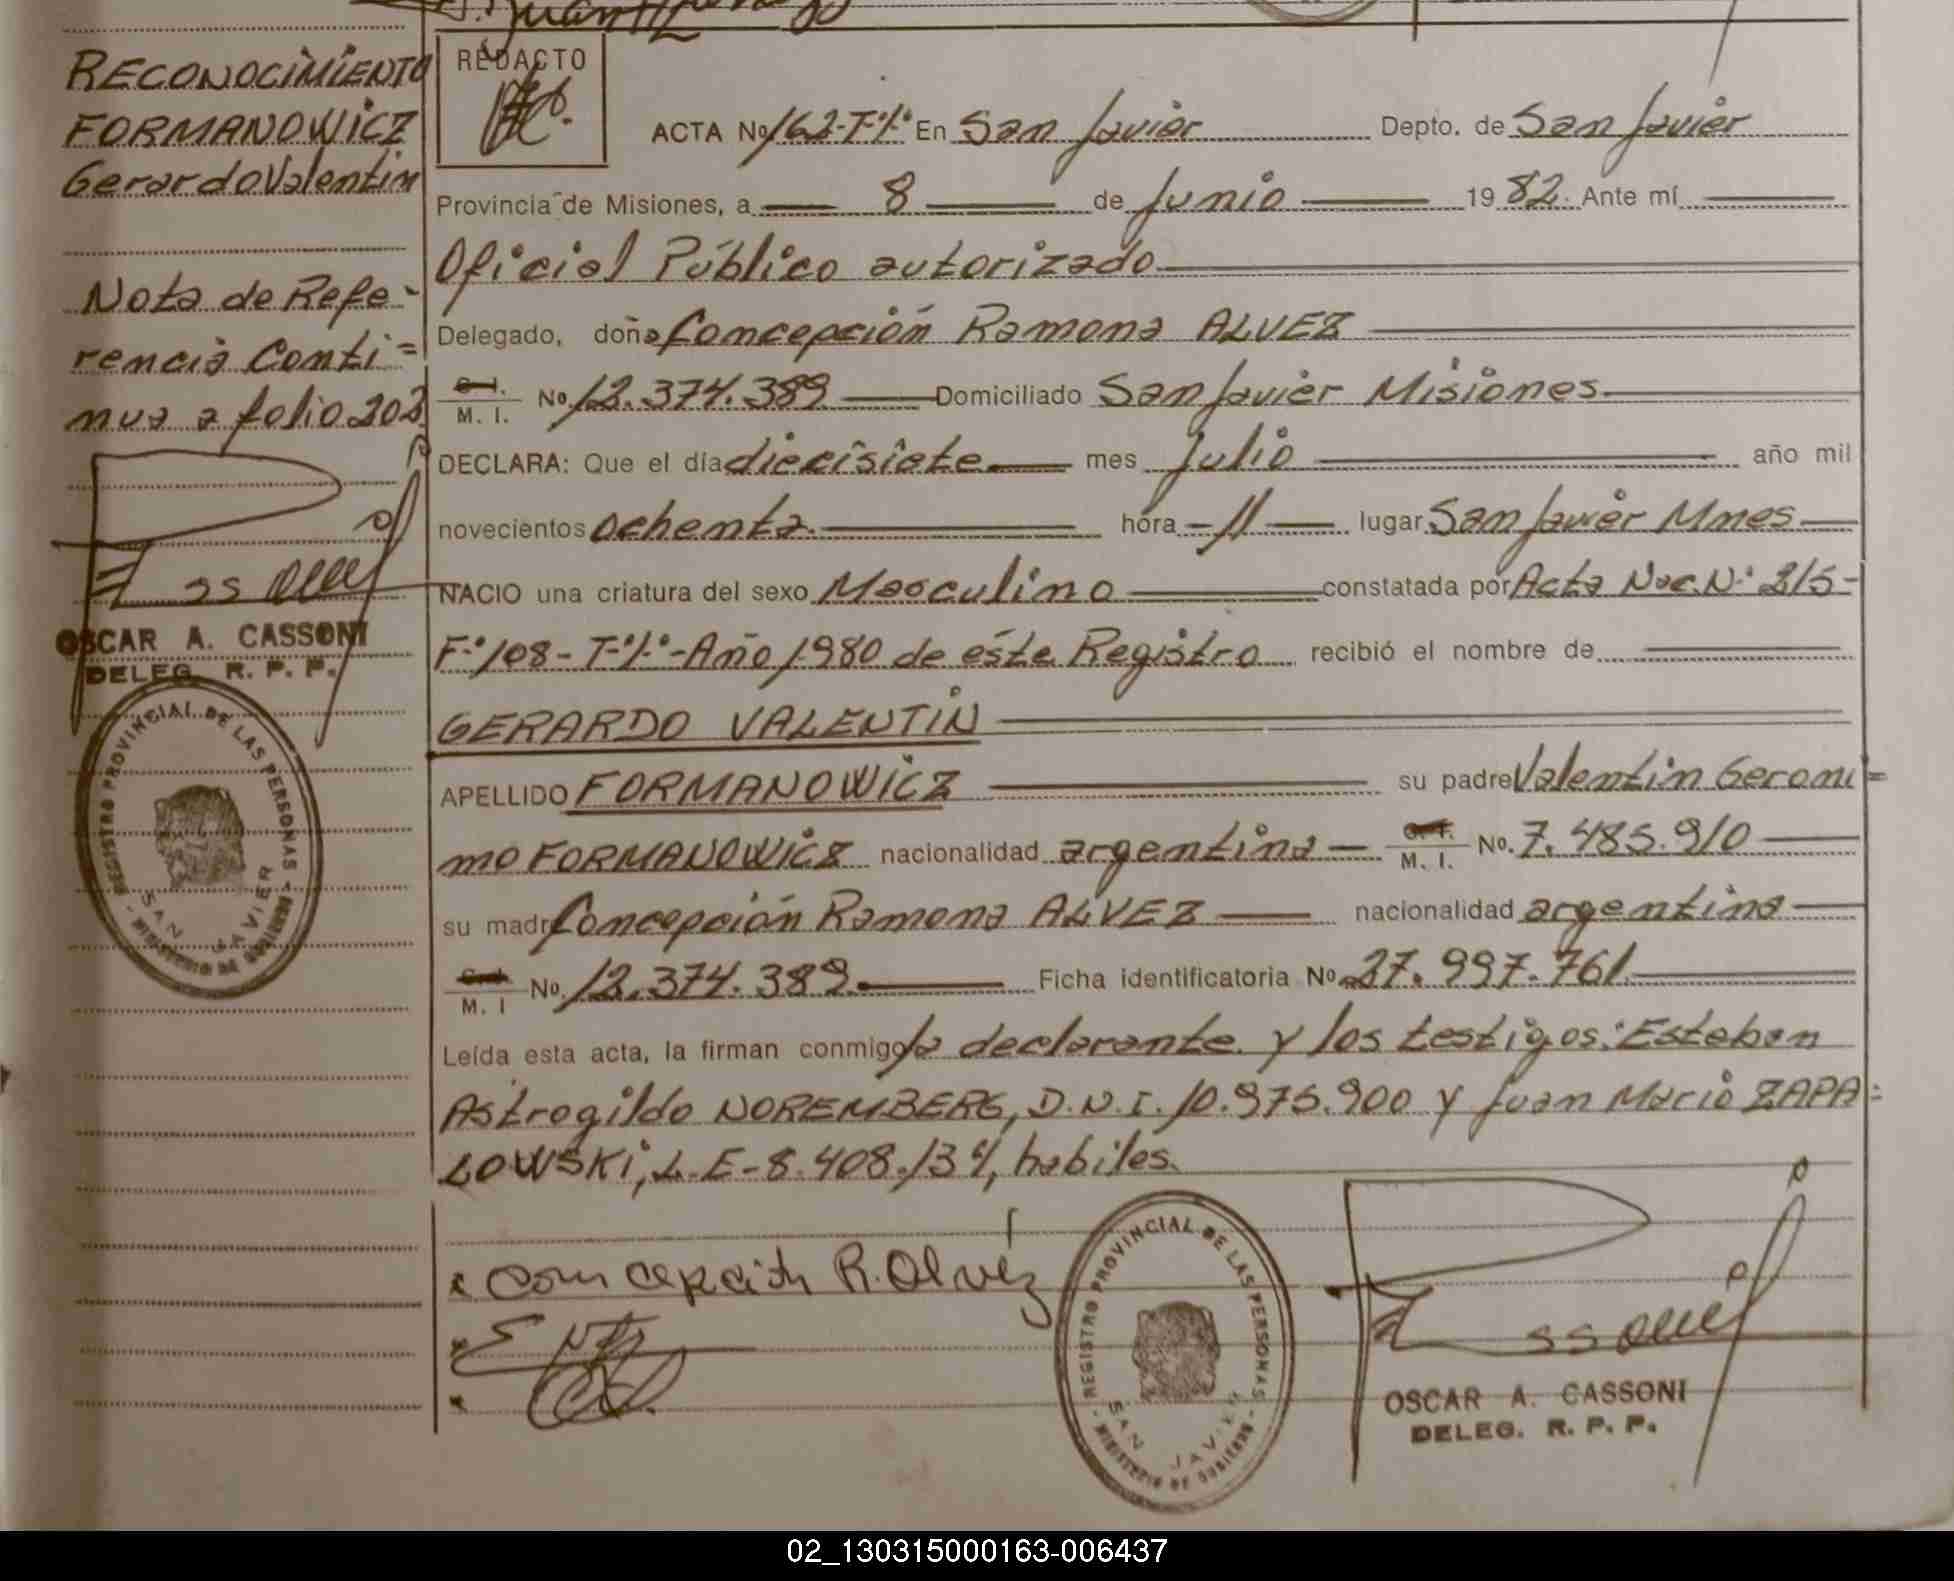 RECONOCIMIENTO
FORMANOWICZ
Gerardo Valentin
Nota de Refe-
rencia Conti=
nua a folio 202
OSCAR A. CASSONI
DELEG. R. P. P.
REGISTRO PROVINCIAL DE LAS PERSONAS - MINISTERIO DE GOBIERNO -
SAN JAVIER
REDACTO
ACTA No 162-Tº1º En San Javier Depto. de San Javier
Provincia de Misiones, a 8 de Junio 1982. Ante mí
Oficial Público autorizado
Delegado, doña Concepción Ramona ALVEZ
C. I. / M. I. No. 12.374.389 Domiciliado San Javier Misiones
DECLARA: Que el día diecisiete mes julio año mil
novecientos ochenta hora -11- lugar San Javier Mnes
NACIO una criatura del sexo Masculino constatada por Acta Nac. Nº 215-
Fº108-Tº1º-Año 1980 de éste Registro recibió el nombre de
GERARDO VALENTIN
APELLIDO FORMANOWICZ su padre Valentin Geroni=
mo FORMANOWICZ nacionalidad argentina C. I. / M. I. No. 7.485.910
su madre Concepción Ramona ALVEZ nacionalidad argentina
C. I. / M. I No. 12.374.389 Ficha identificatoria No. 27.997.761
Leída esta acta, la firman conmigo la declarante y los testigos: Esteban
Astrogildo NOREMBERG, D.N.I. 10.975.900 y Juan Mario ZAPA=
LOWSKI, L.E-8.408.134, habiles.
Concepción R. Alvez
REGISTRO PROVINCIAL DE LAS PERSONAS - MINISTERIO DE GOBIERNO -
SAN JAVIER
OSCAR A. CASSONI
DELEG. R. P. P.
02_130315000163-006437